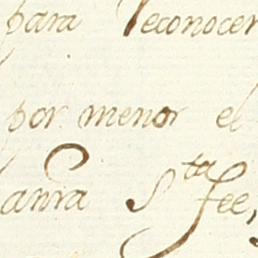 para reconocer
por menor el
anra Sta Fee,